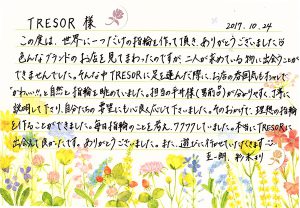 TRESOR 様
2017.10.24
この度は、世界に一つだけの指輪を作って頂き、ありがとうございました。
色んなブランドのお店を見てまわったのですが、二人が求めている物に出会うことが
できませんでした。そんな中TRESORに足を運んだ際に、お店の雰囲気もあわせて
"かわいい!!"と自然と指輪を眺めていました。担当の平井様(男前)が分かりやすく、丁寧に
説明して下さり、自分たちの要望にも心良く応じて下さいました。そのおかげで、理想の指輪
を作ることができました。毎日指輪のことを考え、ワクワクしていました。本当にTRESORに
出会えて良かったです。ありがとうございました。また、遊びに行かせていただきます